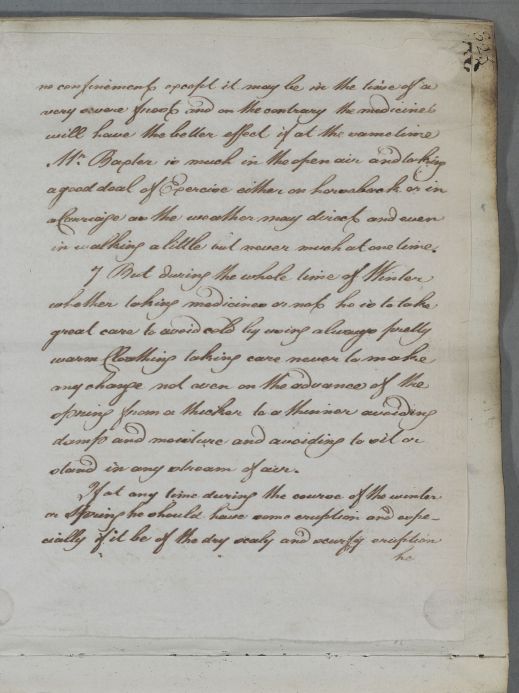 no confinement except it may be in the time of a
very severe frost and on the contrary the medicines
will have the better effect if at the same time
Mr. Baxter is much in the open air and taking
a good deal of Exercise either on horseback or in
a Carriage as the weather may direct and even
in walking a little but never much at one time.
7 But during the whole time of Winter
whether taking medicines or not he is to take
great care to avoid cold by using always pretty
warm Cloathing taking care never to make
any change not even on the advance of the
Spring from a thicker to a thinner avoiding
damp and moisture and avoiding to sit or
stand in any stream of air.
If at any time during the course of the winter
or Spring he should have some eruption and espe-
cially if it be of the dry scaly and scurfy eruption
he